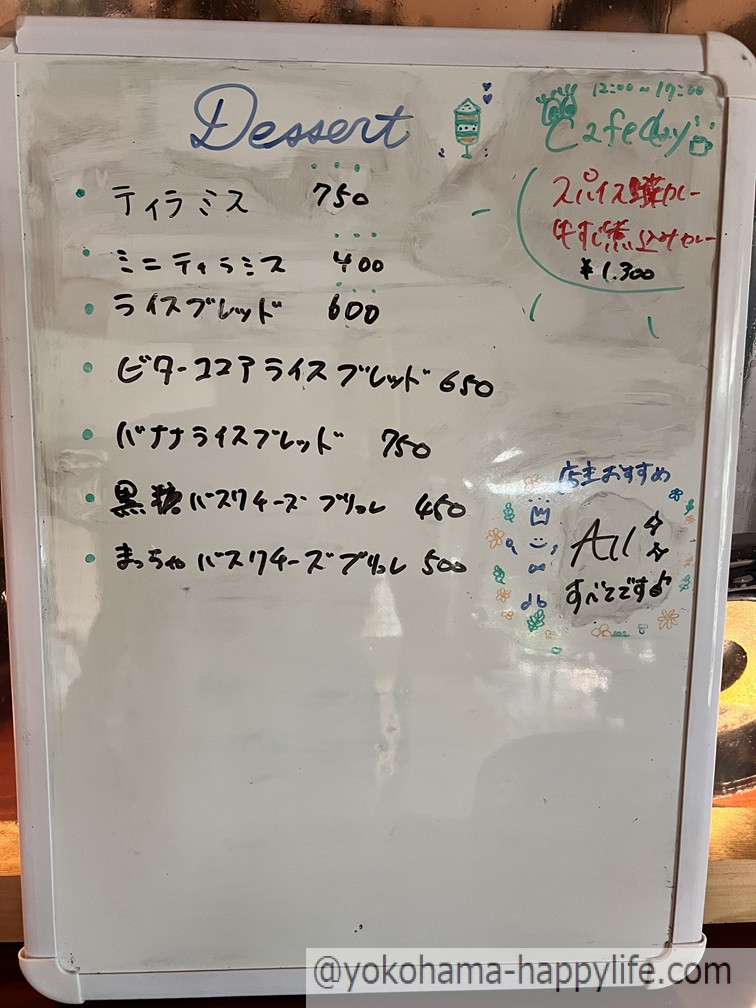 Dessert
ティラミス 750
ミニティラミス 400
ライスブレッド 600
ビターココアライスブレッド 650
バナナライスブレッド 750
黒糖バスクチーズブリュレ 450
まっちゃバスクチーズブリュレ 500
12:00~17:00
Cafeday
スパイス カレー
牛すじ煮込みカレー
¥1.300
店主おすすめ
All
すべてです♪
@yokohama-happylife.com